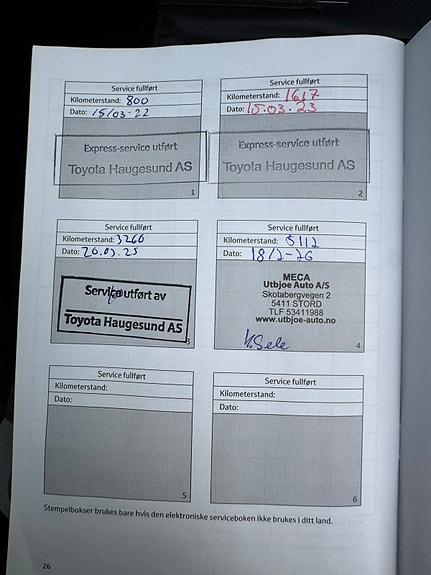 Service fullført
Kilometerstand: 800
Dato: 15/03-22
Express-service utført
Toyota Haugesund AS
1
Service fullført
Kilometerstand: 1617
Dato: 15.03.23
Express-service utført
Toyota Haugesund AS
2
Service fullført
Kilometerstand: 3260
Dato: 20.03.25
Service utført av
Toyota Haugesund AS
3
Service fullført
Kilometerstand: 5112
Dato: 18/2-26
MECA
Utbjoe Auto A/S
Skotabergvegen 2
5411 STORD
TLF 53411988
www.utbjoe-auto.no
4
Service fullført
Kilometerstand:
Dato:
5
Service fullført
Kilometerstand:
Dato:
6
Stempelbokser brukes bare hvis den elektroniske serviceboken ikke brukes i ditt land.
26